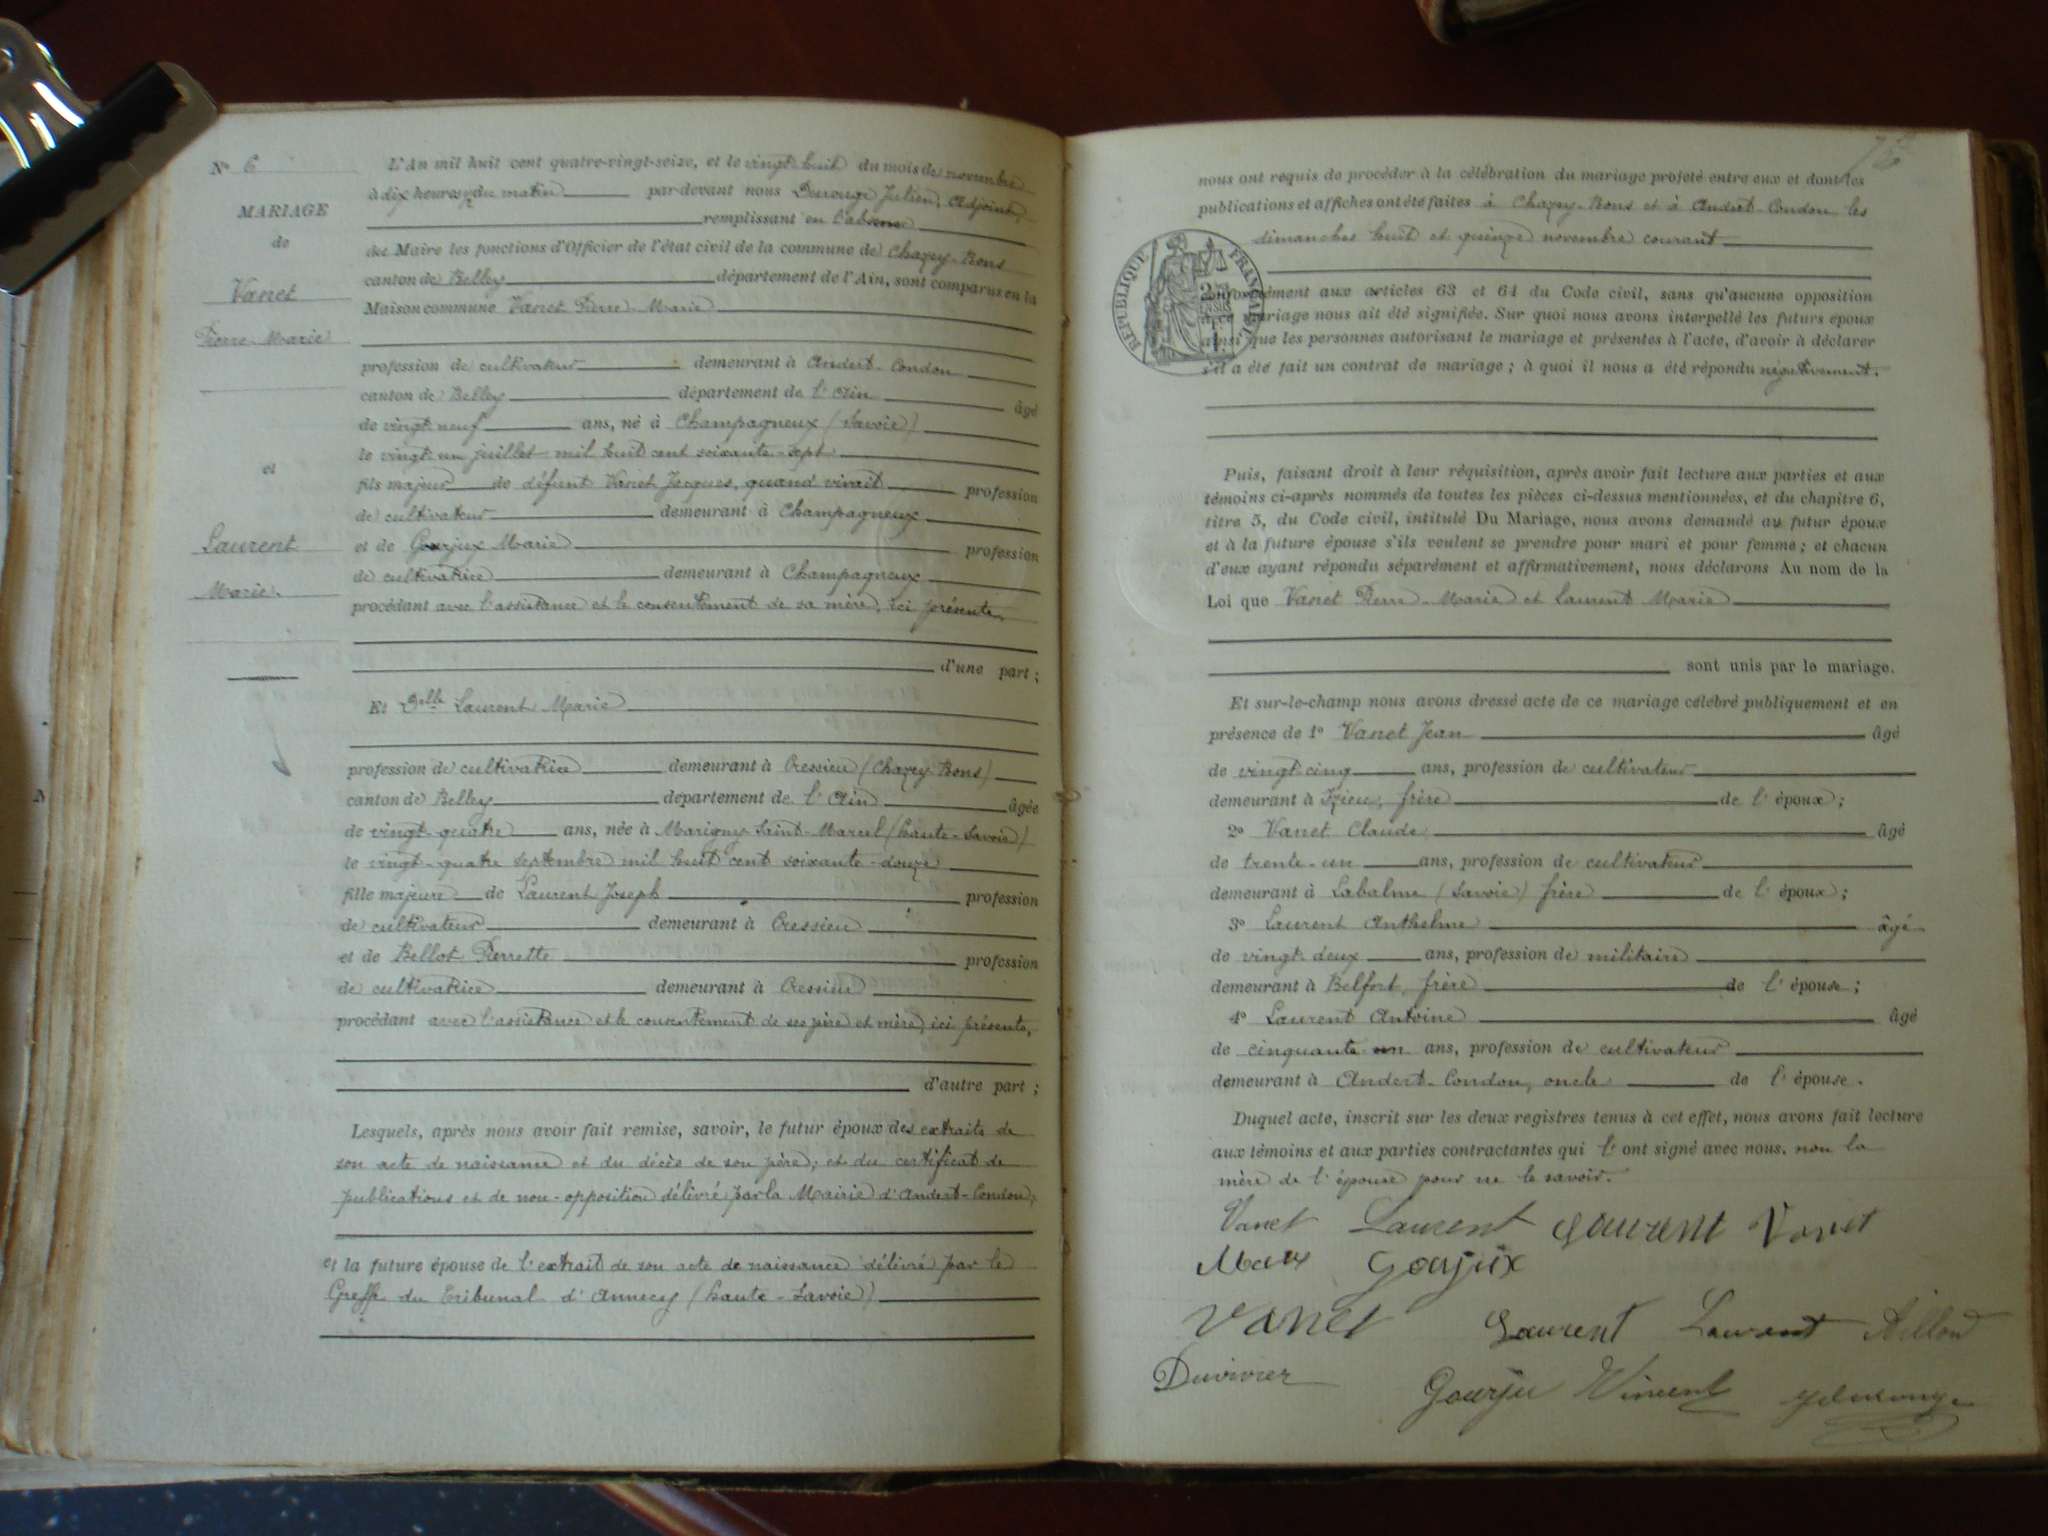 N° 6
MARIAGE
de
Vanet
Pierre-Marie
et
Laurent
Marie.
L'An mil huit cent quatre-vingt-seize, et le vingt-huit du mois de novembre
à dix heures du matin par-devant nous Derouge Julien, Adjoint,
remplissant en l'absence
du Maire les fonctions d'Officier de l'état civil de la commune de Chazey-Bons
canton de Belley département de l'Ain, sont comparus en la
Maison commune Vanet Pierre-Marie
profession de cultivateur demeurant à Andert-Condon
canton de Belley département de l'Ain âgé
de vingt-neuf ans, né à Champagneux (Savoie)
le vingt-un juillet mil huit cent soixante-sept
fils majeur de défunt Vanet Jacques, quand vivait profession
de cultivateur demeurant à Champagneux
et de Gourjux Marie profession
de cultivatrice demeurant à Champagneux
procédant avec l'assistance et le consentement de sa mère, ici présente,
d'une part ;
Et Delle Laurent Marie
profession de cultivatrice demeurant à Cressieu (Chazey-Bons)
canton de Belley département de l'Ain âgée
de vingt-quatre ans, née à Marigny-Saint-Marcel (Haute-Savoie)
le vingt-quatre septembre mil huit cent soixante-douze
fille majeure de Laurent Joseph profession
de cultivateur demeurant à Cressieu
et de Bellot Pierrette profession
de cultivatrice demeurant à Cressieu
procédant avec l'assistance et le consentement de ses père et mère, ici présents,
d'autre part ;
Lesquels, après nous avoir fait remise, savoir, le futur époux des extraits de
son acte de naissance et du décès de son père; et du certificat de
publications et de non-opposition délivré par la Mairie d'Andert-Condon;
et la future épouse de l'extrait de son acte de naissance délivré par le
Greffe du Tribunal d'Annecy (Haute-Savoie)
nous ont requis de procéder à la célébration du mariage projeté entre eux et dont les
publications et affiches ont été faites à Chazey-Bons et à Andert-Condon, les
dimanches huit et quinze novembre courant
RÉPUBLIQUE FRANÇAISE
conformément aux articles 63 et 64 du Code civil, sans qu'aucune opposition
à ce mariage nous ait été signifiée. Sur quoi nous avons interpellé les futurs époux
ainsi que les personnes autorisant le mariage et présentes à l'acte, d'avoir à déclarer
s'il a été fait un contrat de mariage ; à quoi il nous a été répondu négativement.
Puis, faisant droit à leur réquisition, après avoir fait lecture aux parties et aux
témoins ci-après nommés de toutes les pièces ci-dessus mentionnées, et du chapitre 6,
titre 5, du Code civil, intitulé Du Mariage, nous avons demandé au futur époux
et à la future épouse s'ils veulent se prendre pour mari et pour femme ; et chacun
d'eux ayant répondu séparément et affirmativement, nous déclarons Au nom de la
Loi que Vanet Pierre-Marie et Laurent Marie
sont unis par le mariage.
Et sur-le-champ nous avons dressé acte de ce mariage célébré publiquement et en
présence de 1° Vanet Jean âgé
de vingt-cinq ans, profession de cultivateur
demeurant à Izieu, frère de l'époux ;
2° Vanet Claude âgé
de trente-un ans, profession de cultivateur
demeurant à Labalme (Savoie) frère de l'époux ;
3° Laurent Anthelme âgé
de vingt-deux ans, profession de militaire
demeurant à Belfort, frère de l'épouse ;
4° Laurent Antoine âgé
de cinquante-un ans, profession de cultivateur
demeurant à Andert-Condon, oncle de l'épouse.
Duquel acte, inscrit sur les deux registres tenus à cet effet, nous avons fait lecture
aux témoins et aux parties contractantes qui l'ont signé avec nous. non la
mère de l'épouse pour ne le savoir.
Vanet Laurent Laurent Vanet
Gourjux
Vanet Laurent Laurent
Duvivier Gourju Vincent